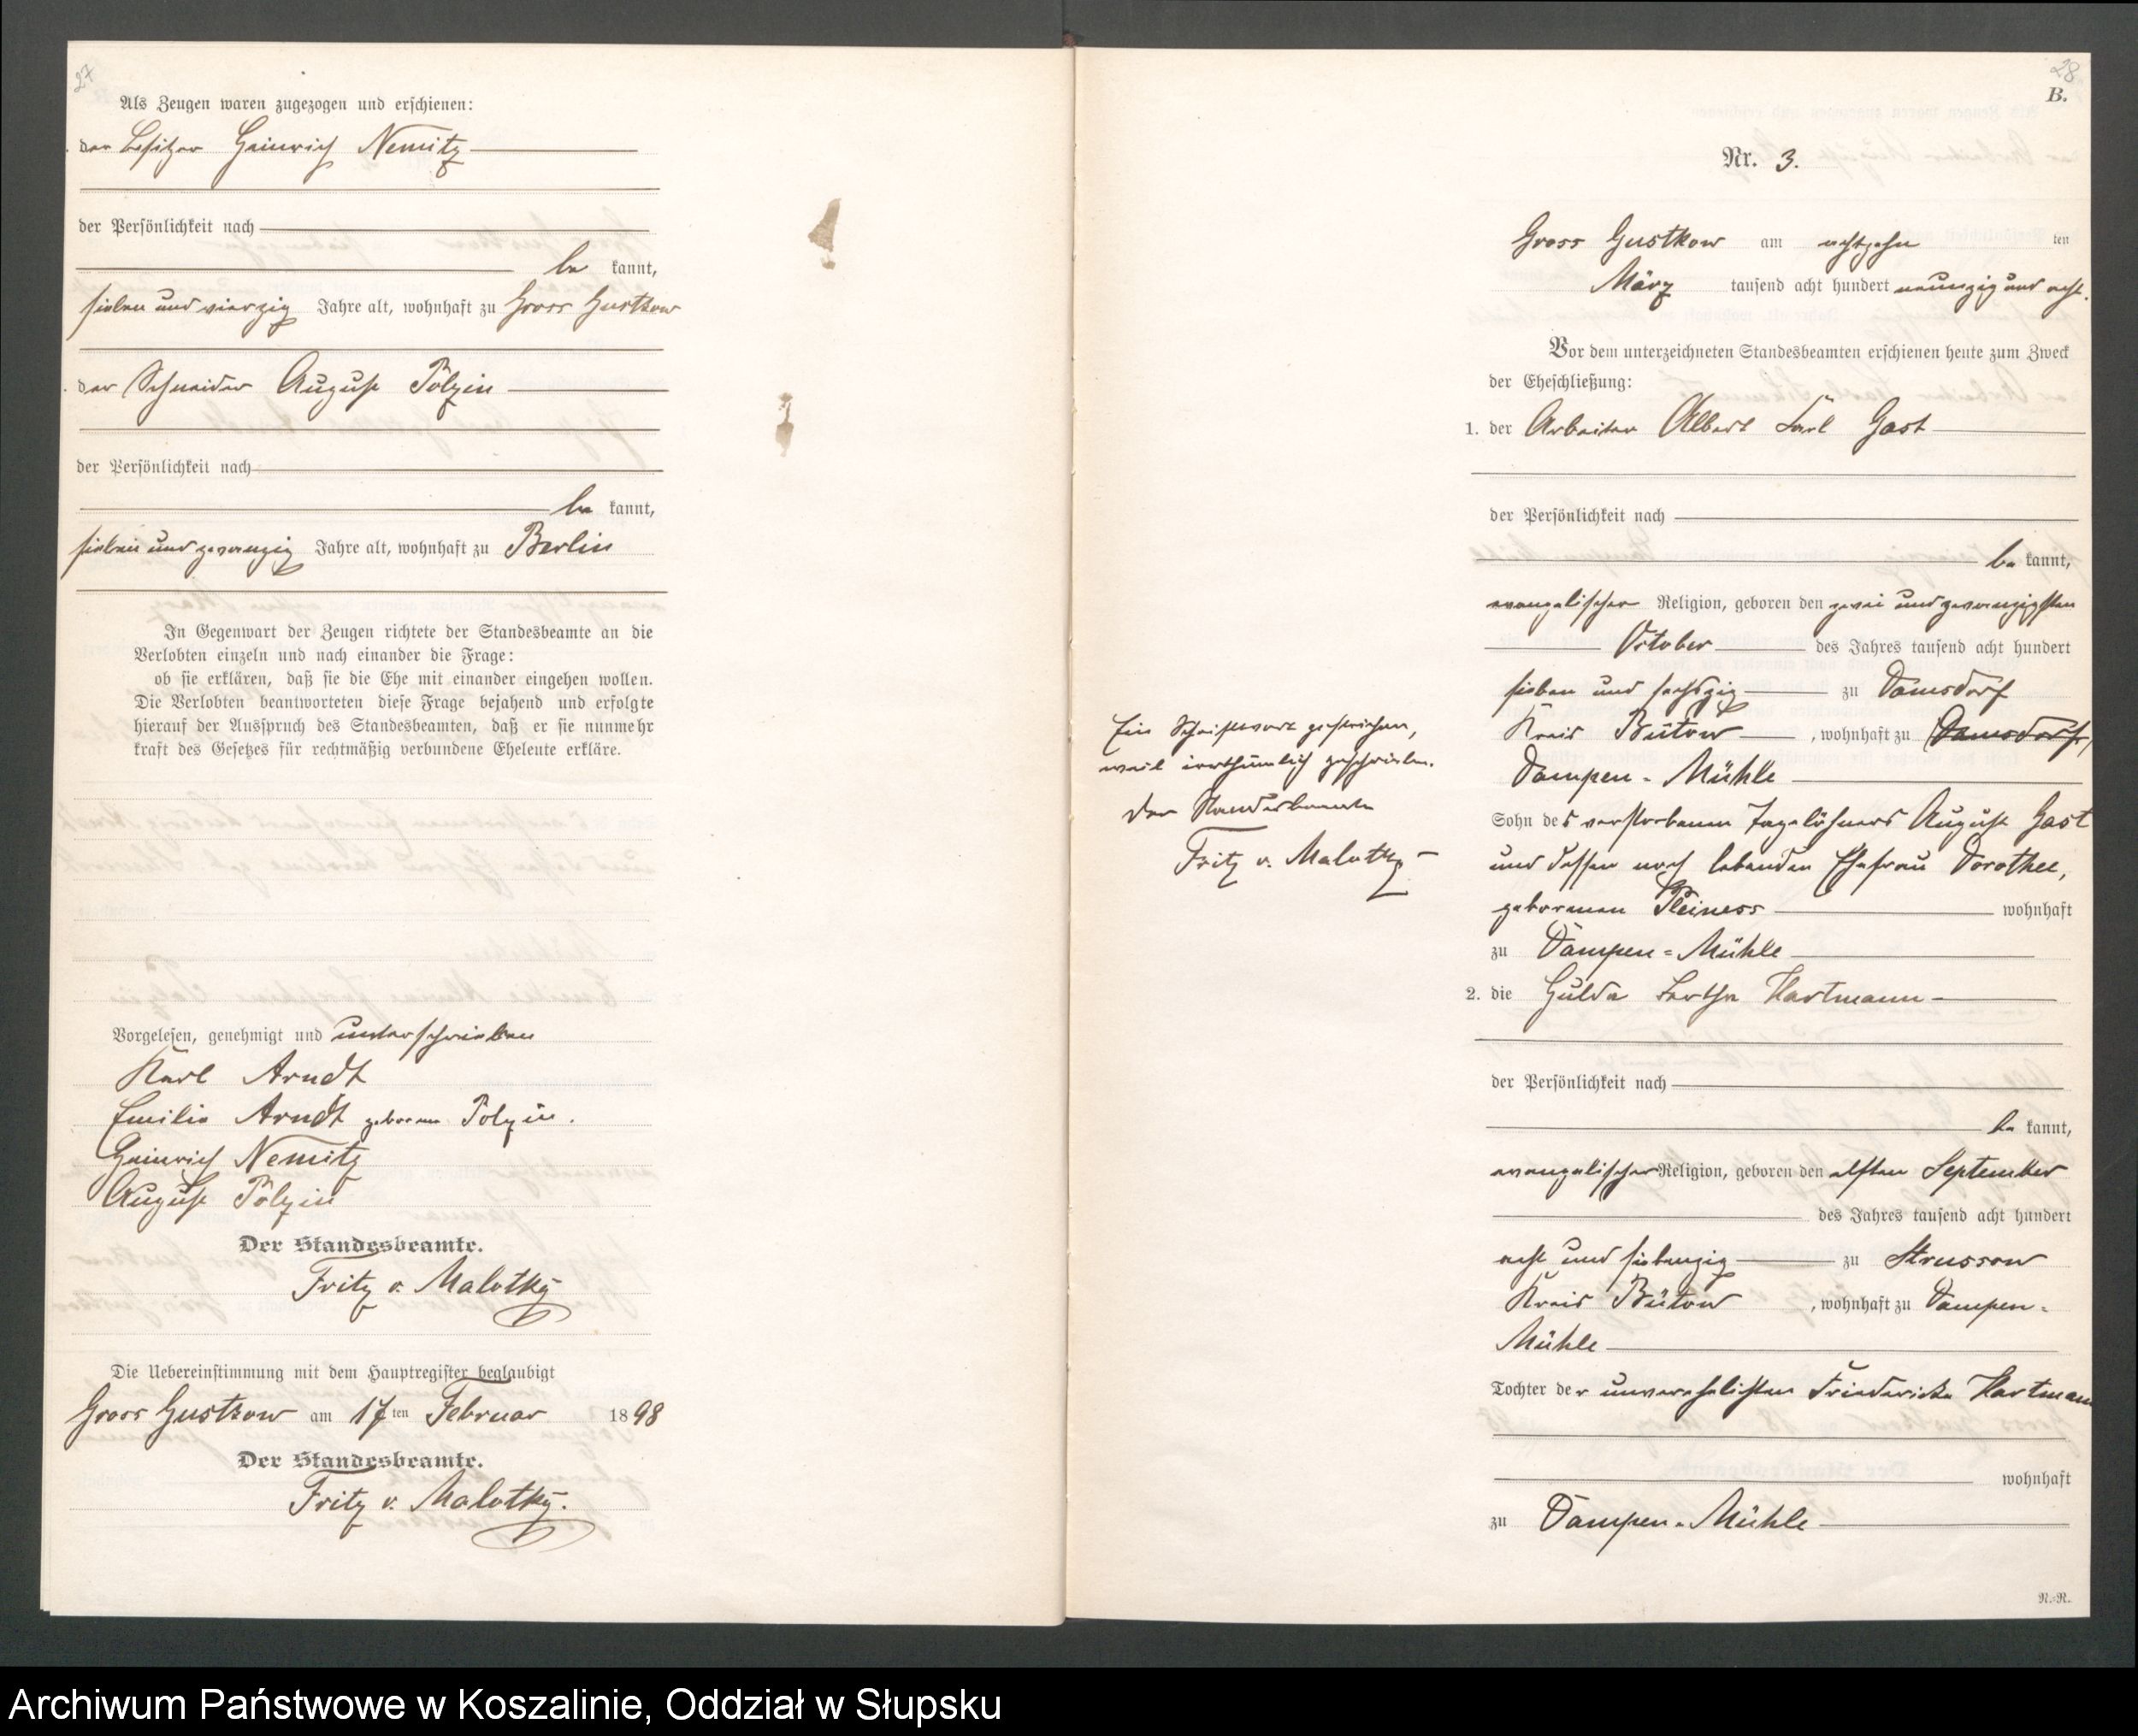 27
Als Zeugen waren zugezogen und erschienen:
der Besitzer Heinrich Nemitz
der Persönlichkeit nach
be kannt,
sieben und vierzig Jahre alt, wohnhaft zu Gross Gustkow
der Schneider August Polzin
der Persönlichkeit nach
be kannt,
sieben und zwanzig Jahre alt, wohnhaft zu Berlin
In Gegenwart der Zeugen richtete der Standesbeamte an die
Verlobten einzeln und nach einander die Frage:
ob sie erklären, daß sie die Ehe mit einander eingehen wollen.
Die Verlobten beantworteten diese Frage bejahend und erfolgte
hierauf der Ausspruch des Standesbeamten, daß er sie nunmehr
kraft des Gesetzes für rechtmäßig verbundene Eheleute erkläre.
Vorgelesen, genehmigt und unterschrieben
Karl Arndt
Emilie Arndt geborene Polzin.
Heinrich Nemitz
August Polzin
Der Standesbeamte.
Fritz v. Malotky
Die Uebereinstimmung mit dem Hauptregister beglaubigt
Gross Gustkow am 17ten Februar 1898
Der Standesbeamte.
Fritz v. Malotky.
28
B.
Nr. 3.
Gross Gustkow am achtzehn ten
März tausend acht hundert neunzig und acht.
Vor dem unterzeichneten Standesbeamten erschienen heute zum Zweck
der Eheschließung:
1. der Arbeiter Albert Karl Gast
der Persönlichkeit nach
be kannt,
evangelischer Religion, geboren den zwei und zwanzigsten
October des Jahres tausend acht hundert
sieben und sechszig zu Damsdorf
Kreis Bütow, wohnhaft zu Damsdorf,
Dampen-Mühle
Sohn des verstorbenen Tagelöhners August Gast
und dessen noch lebenden Ehefrau Dorothee,
geborenen Pleiness wohnhaft
zu Dampen-Mühle
2. die Hulda Bertha Hartmann
der Persönlichkeit nach
be kannt,
evangelischer Religion, geboren den elften September
des Jahres tausend acht hundert
acht und siebenzig zu Strussow
Kreis Bütow, wohnhaft zu Dampen-
Mühle
Tochter der unverehelichten Friedericke Hartmann
wohnhaft
zu Dampen-Mühle
N.-R.
Ein Schriftwort gestrichen,
weil irrthümlich geschrieben.
Der Standesbeamte
Fritz v. Malotky
Archiwum Państwowe w Koszalinie, Oddział w Słupsku